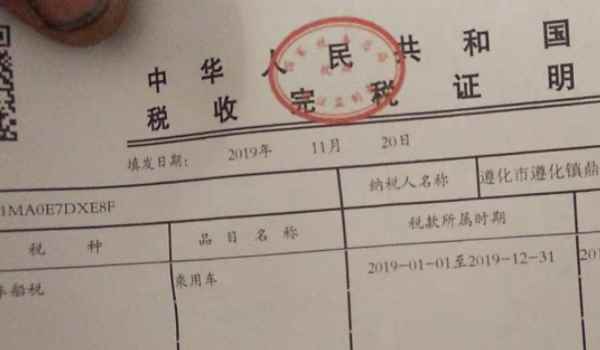 中华人民共和国
税收完税证明
填发日期： 2019年 11月 20日
1MA0E7DXE8F 纳税人名称 遵化市遵化镇鼎
税 种 品 目 名 称 税款所属时期
车船税 乘用车 2019-01-01至2019-12-31 201